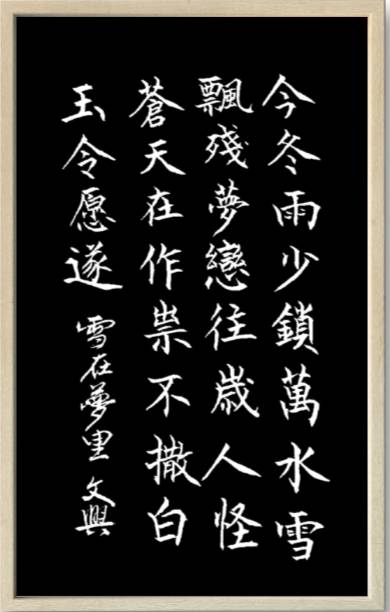 今冬雨少鎖萬水雪
飄殘夢戀往歲人怪
蒼天在作祟不撒白
玉令愿遂
雪在夢里 文興